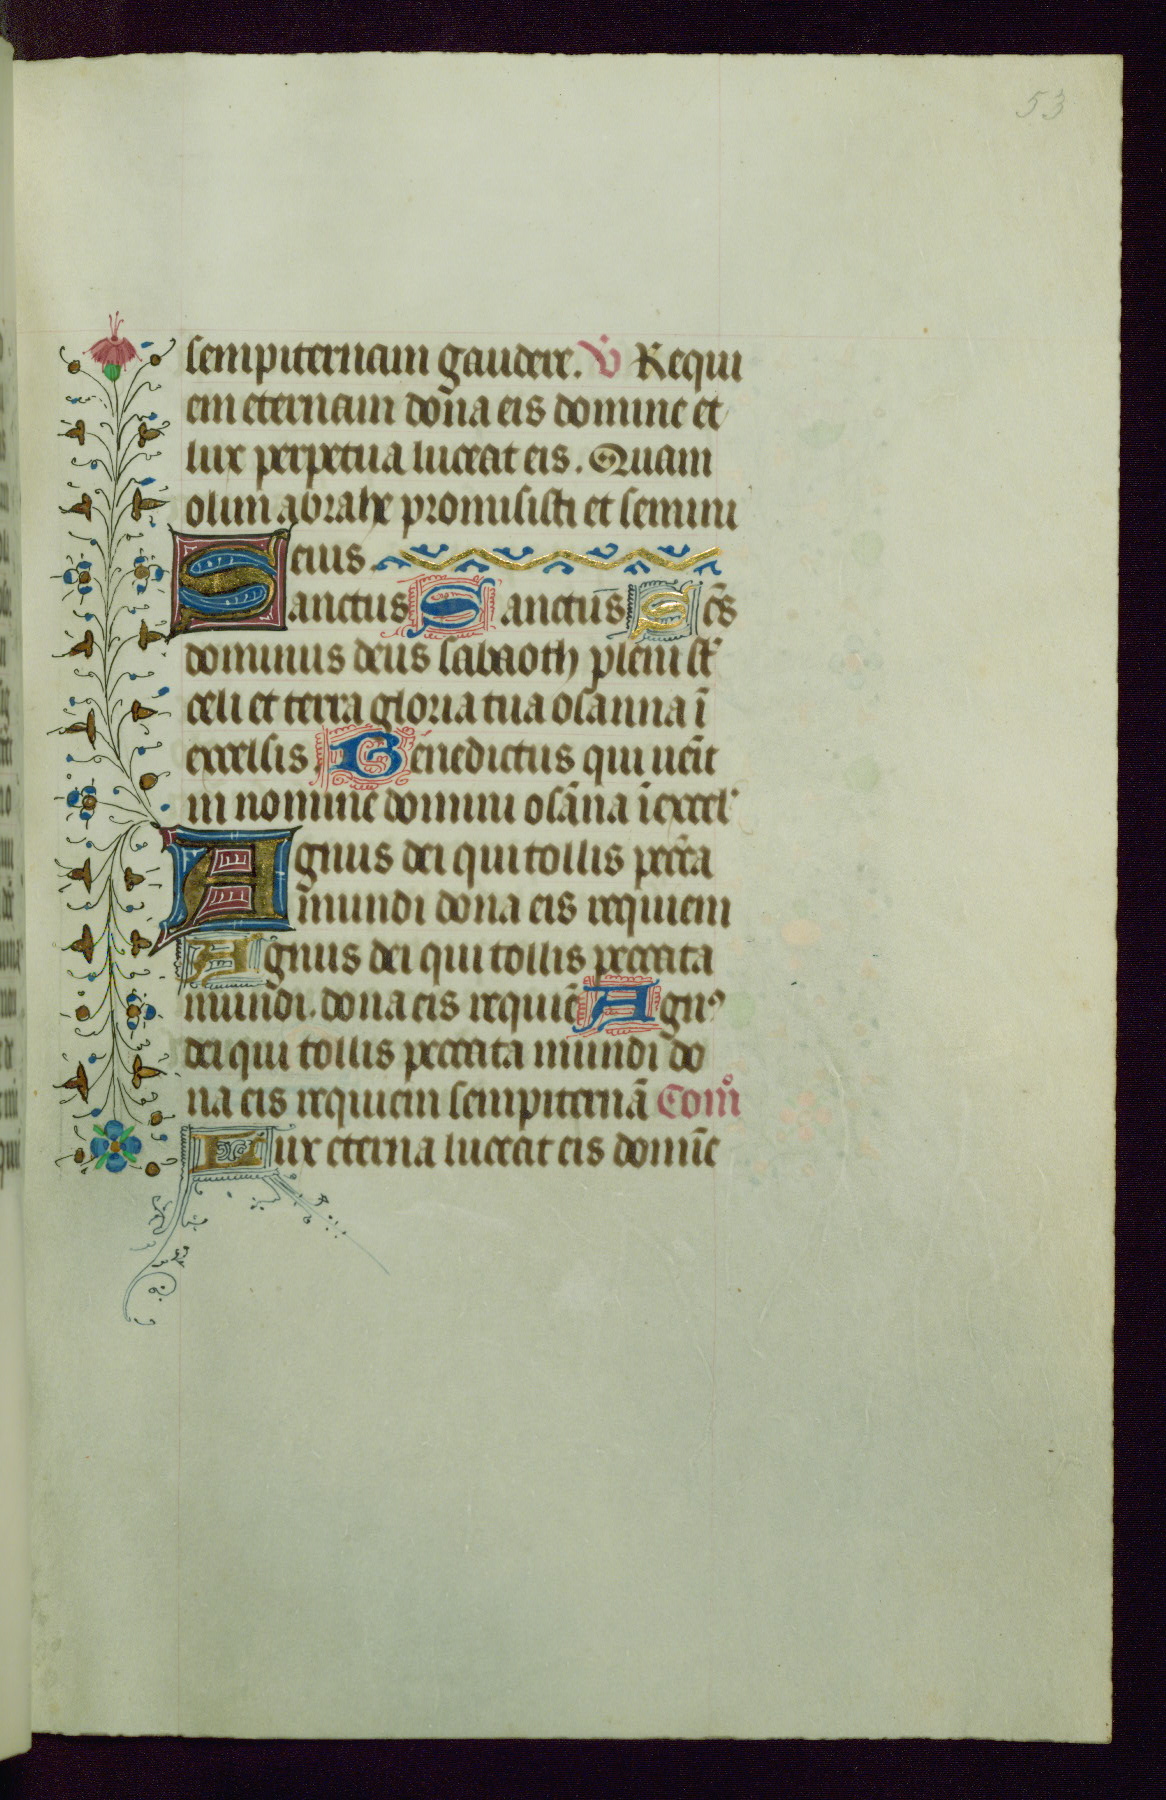 53
sempiternam gaudere. V̇ Requi
em eternam dona eis domine et
lux perpetua luceat eis. Quam
olim abrahe promisisti et semini
eius.
Sanctus Sanctus Sc̄s
dominus deus sabaoth pleni st̄
celi et terra gloria tua osanna ī
excelsis. Benedictus qui uenit
in nomine domini osāna ī excel
Agnus dei qui tollis pecc̄ta
mundi dona eis requiem
Agnus dei qui tollis peccata
mundi. dona eis requiē Agnꝰ
dei qui tollis peccata mundi do
na eis requiem sempiternā Com̄o
Lux eterna luceat eis domīe